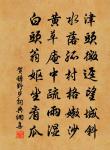 津頭微逕望城斜
水落孤村格嫩沙
黃草庵中疏雨濕
白頭翁嫗坐看瓜
賀鑄野步詞典網集